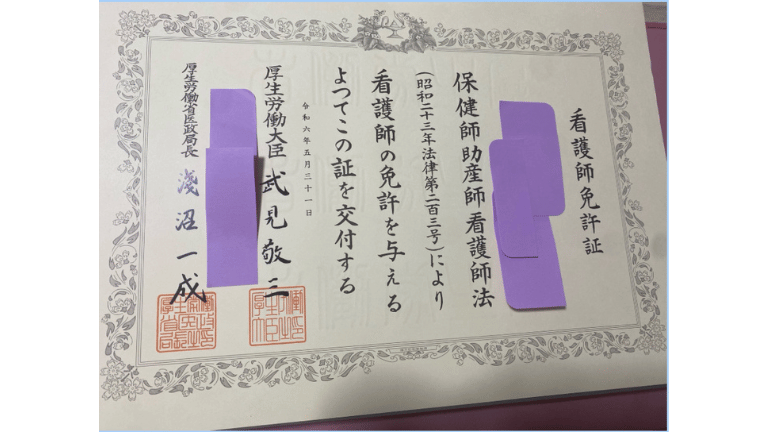 看護師免許証
保健師助産師看護師法
(昭和二十三年法律第二百三号)により
看護師の免許を与える
よつてこの証を交付する
令和六年五月三十一日
厚生労働大臣 武見敬三
厚生労働省医政局長 浅沼一成